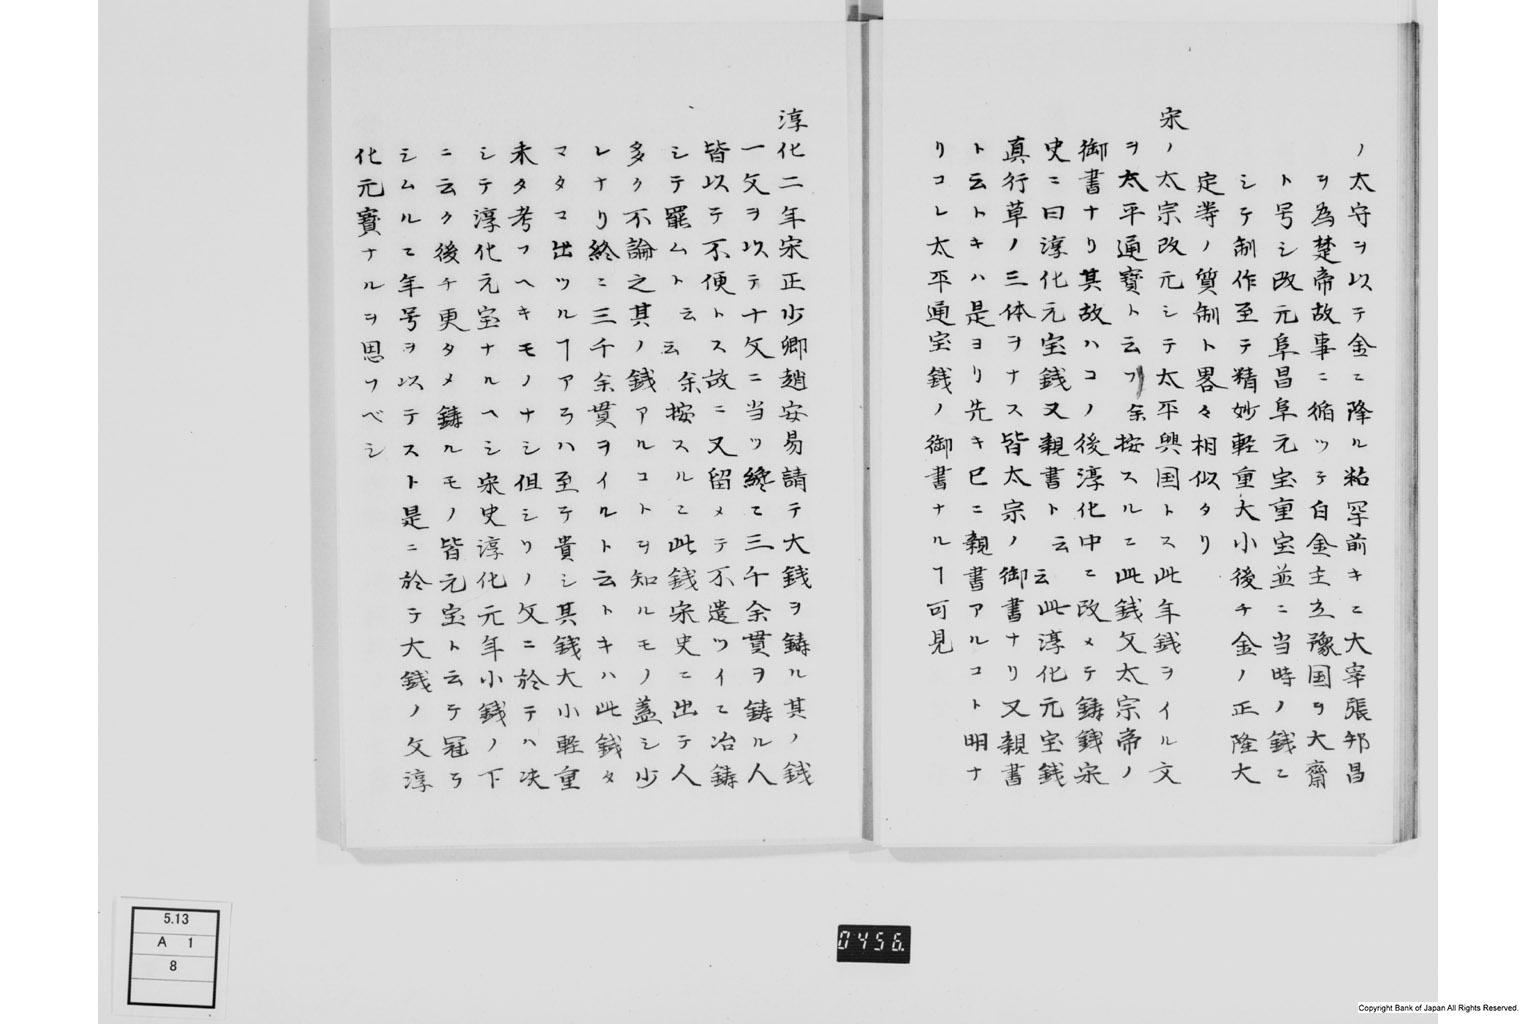 ノ太守ヲ以テ金ニ降ル粘罕前キニ大宰張邦昌
ヲ為楚帝故事ニ循ツテ白金主立豫国ヲ大齋
ト号シ改元阜昌阜元宝重宝並ニ当時ノ銭ニ
シテ制作至テ精妙軽重大小後チ金ノ正隆大
定等ノ質制ト畧々相似タリ
宋ノ太宗改元シテ太平興国トス此年銭ヲイル文
ヲ太平通寳ト云フ余按スルニ此銭文太宗帝ノ
御書ナリ其故ハコノ後淳化中ニ改メテ鋳銭宋
史ニ曰淳化元宝銭又親書ト云云此淳化元宝銭
真行草ノ三体ヲナス皆太宗ノ御書ナリ又親書
ト云トキハ是ヨリ先キ巳ニ親書アルコト明ナ
リコレ太平通宝銭ノ御書ナルヿ可見
淳化二年宋正少卿趙安易請テ大銭ヲ鋳ル其ノ銭
一文ヲ以テ十文ニ当ツ纔ニ三千余貫ヲ鋳ル人
皆以テ不便トス故ニ又留メテ不遣ツイニ冶鋳
シテ罷ムト云云余按スルニ此銭宋史ニ出テ人
多ク不論之其ノ銭アルコトヲ知ルモノ蓋シ少
レナリ終ニ三千余貫ヲイルト云トキハ此銭タ
マタマ出ツルヿアラハ至テ貴シ其銭大小軽重
未タ考フヘキモノナシ但シリノ文ニ於テハ决
シテ淳化元宝ナルヘシ宋史淳化元年小銭ノ下
ニ云ク後チ更タメ鋳ルモノ皆元宝ト云テ冠ラ
シムルニ年号ヲ以テスト是ニ於テ大銭ノ文淳
化元寳ナルヲ思フベシ
5.13
A 1
8
0456.
Copyright Bank of Japan All Rights Reserved.